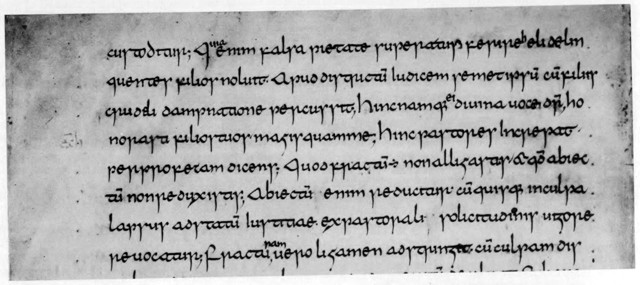 custoditur; Quia enim falsa pietate superatus ferire heli delin
quentes filios noluit. Apud districtū iudicem semetipsū cū filiis
crudeli dampnatione percussit, hinc namq; ei diuina uoce dr̄, ho
norasti filios tuos magis quam me; hinc pastores increpat
per profetam dicens; Quod fractū ÷ non alligastis & qđ abiec
tū non reduxistis; Abiectū enim reducitur cū quisq; in culpa
lapsus ad statū iustitiae ex pastorali solicitudinis uigore
reuocatur; fractū nam uero ligamen adstringit cū culpam dis